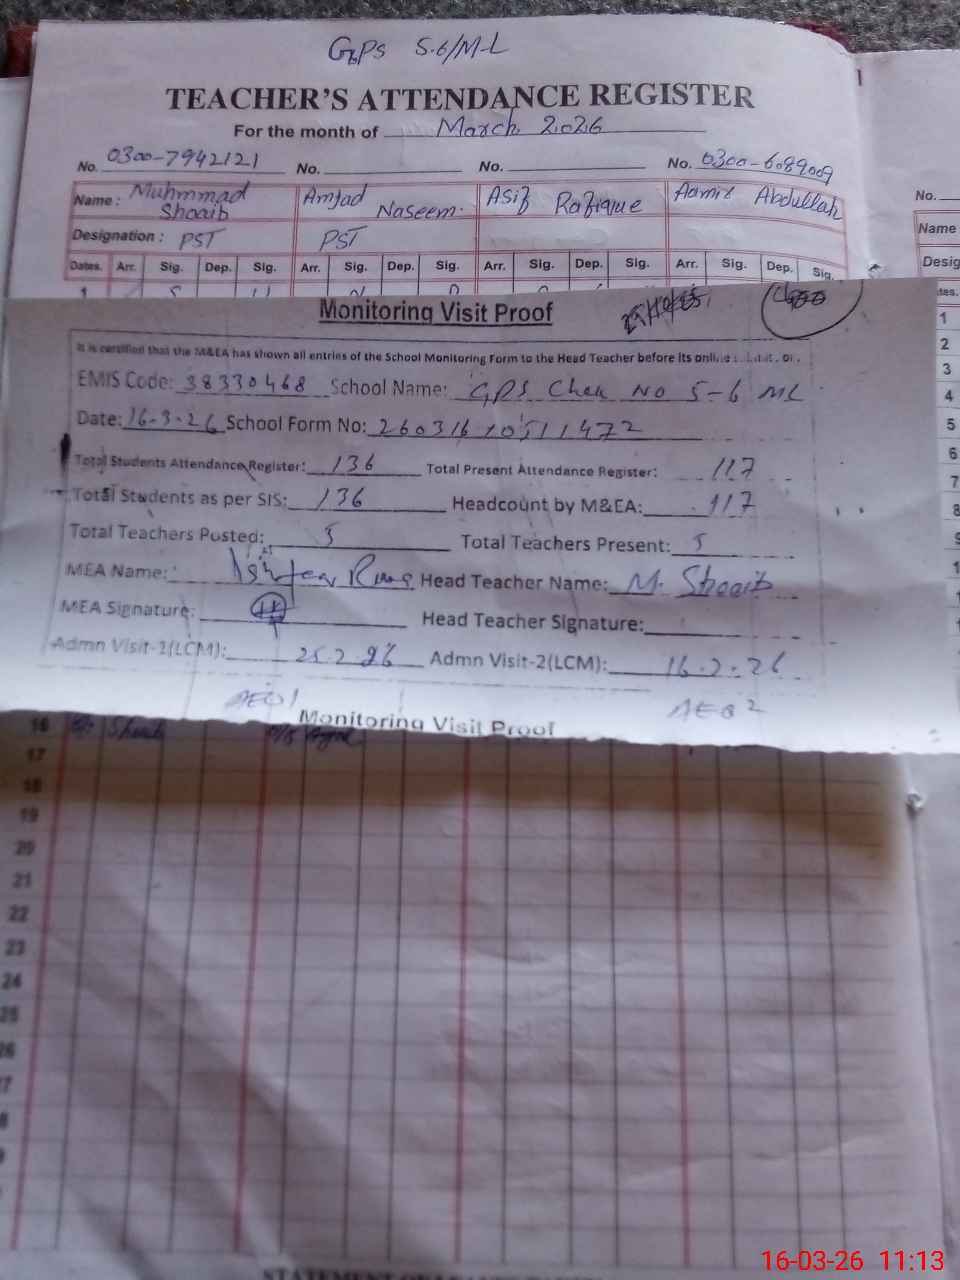 GPS 5.6/M-L
TEACHER'S ATTENDANCE REGISTER
For the month of March 2026
No. 0300-7942121 No. No. No. 0300-6089009
Name: Muhmmad Shoaib Amjad Naseem. Asif Rafique Aamir Abdullah
Designation: PST PST
Dates. Arr. Sig. Dep. Sig. Arr. Sig. Dep. Sig. Arr. Sig. Dep. Sig. Arr. Sig. Dep. Sig.
1
Monitoring Visit Proof
It is certified that the M&EA has shown all entries of the School Monitoring Form to the Head Teacher before its online
EMIS Code: 38330468 School Name: GPS Chak No 5-6 ML
Date: 16-3-26 School Form No: 26031610511472
Total Students Attendance Register: 136 Total Present Attendance Register: 117
Total Students as per SIS: 136 Headcount by M&EA: 117
Total Teachers Posted: 5 Total Teachers Present: 5
MEA Name: Head Teacher Name: M. Shoaib
MEA Signature: Head Teacher Signature:
Admn Visit-1(LCM): 25.2.26 Admn Visit-2(LCM): 16-2-26
AEO 1 AEO 2
Monitoring Visit Proof
16 Shoaib
17
18
19
20
21
22
23
24
25
26
No.
Name
Desig
tes.
1
2
3
4
5
6
7
8
9
16-03-26 11:13